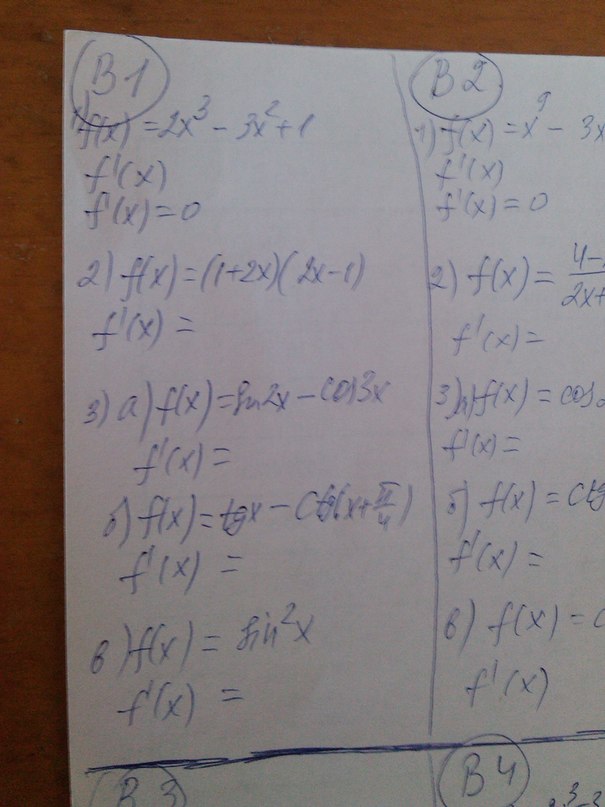 В1
1) f(x) = 2x³ - 3x² + 1
f'(x)
f'(x) = 0
2) f(x) = (1+2x)(2x-1)
f'(x) =
3) а) f(x) = sin2x - cos3x
f'(x) =
б) f(x) = tgx - ctg(x+π/4)
f'(x) =
в) f(x) = sin²x
f'(x) =
В2
1) f(x) = x⁹ - 3x
f'(x)
f'(x) = 0
2) f(x) = 4-/2x+
f'(x) =
3) а) f(x) = cos
f'(x) =
б) f(x) = ctg
f'(x) =
в) f(x) = c
f'(x)
В3
В4